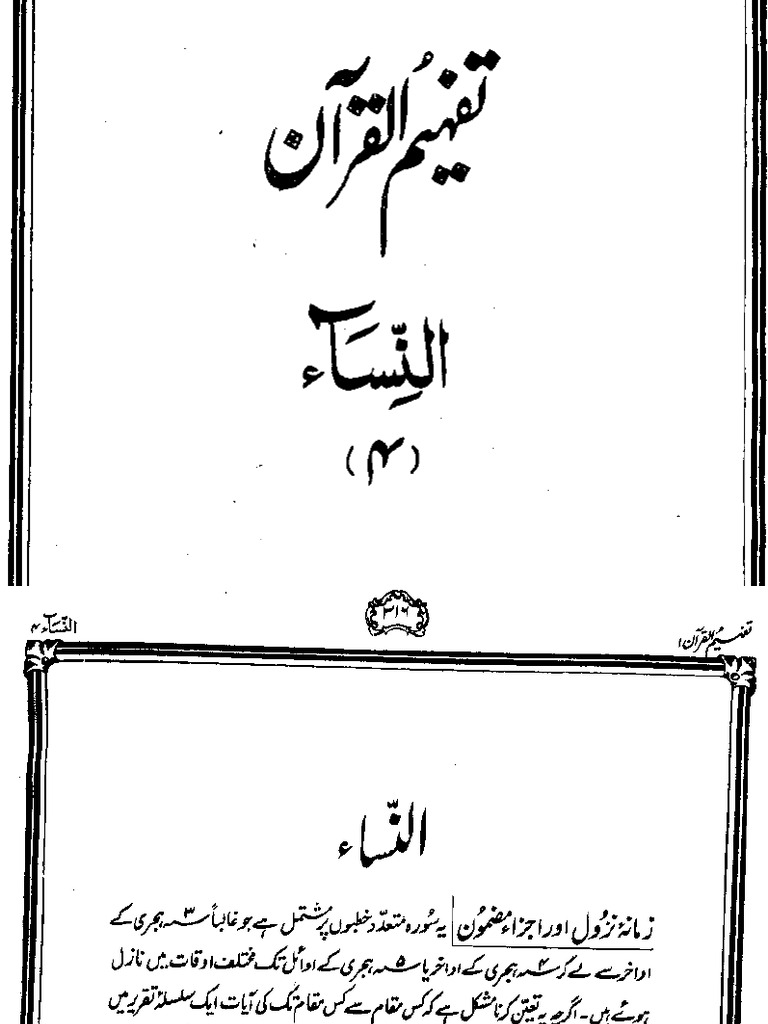 تفہیمُ القرآن
النِّسَآء
(۴)
النِّسَآء ۴
۳۱۶
تفہیم القرآن ۱
النّساء
زمانۂ نزُول اور اجزاء مضمُون یہ سُورہ متعدّد خطبوں پر مشتمل ہے جو غالباً ۳ ہجری کے
اواخر سے لے کر ۴ ہجری کے اواخر یا ۵ ہجری کے اوائل تک مختلف اوقات میں نازل
ہوئے ہیں۔ اگرچہ یہ تعیّن کرنا مشکل ہے کہ کس مقام سے کس مقام تک کی آیات ایک سلسلۂ تقریر میں